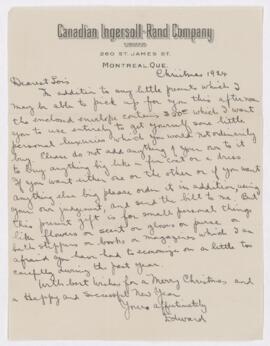 Canadian Ingersoll-Rand Company
LIMITED
260 ST. JAMES ST.
MONTREAL, QUE.
Christmas 1924
Dearest Lois
In addition to any little presents which I
may be able to pick up for you this afternoon
the enclosed envelope contains which I want
you to use entirely to get yourself some little
personal luxuries which you would not ordinarily
buy. Please do not add anything of your own to it
to buy anything big like a fur coat or a dress
If you want either one or the other or if you want
anything else big please order it in addition, using
your own judgement, and send the bill to me. But
this present gift is for small personal things
like flowers or scent or gloves or purse or
bath slippers or books or magazines which I am
afraid you have had to economize on a little too
carefully during the past year.
With best wishes for a Merry Christmas and
a Happy and Successful New Year
Yours affectionately
Edward